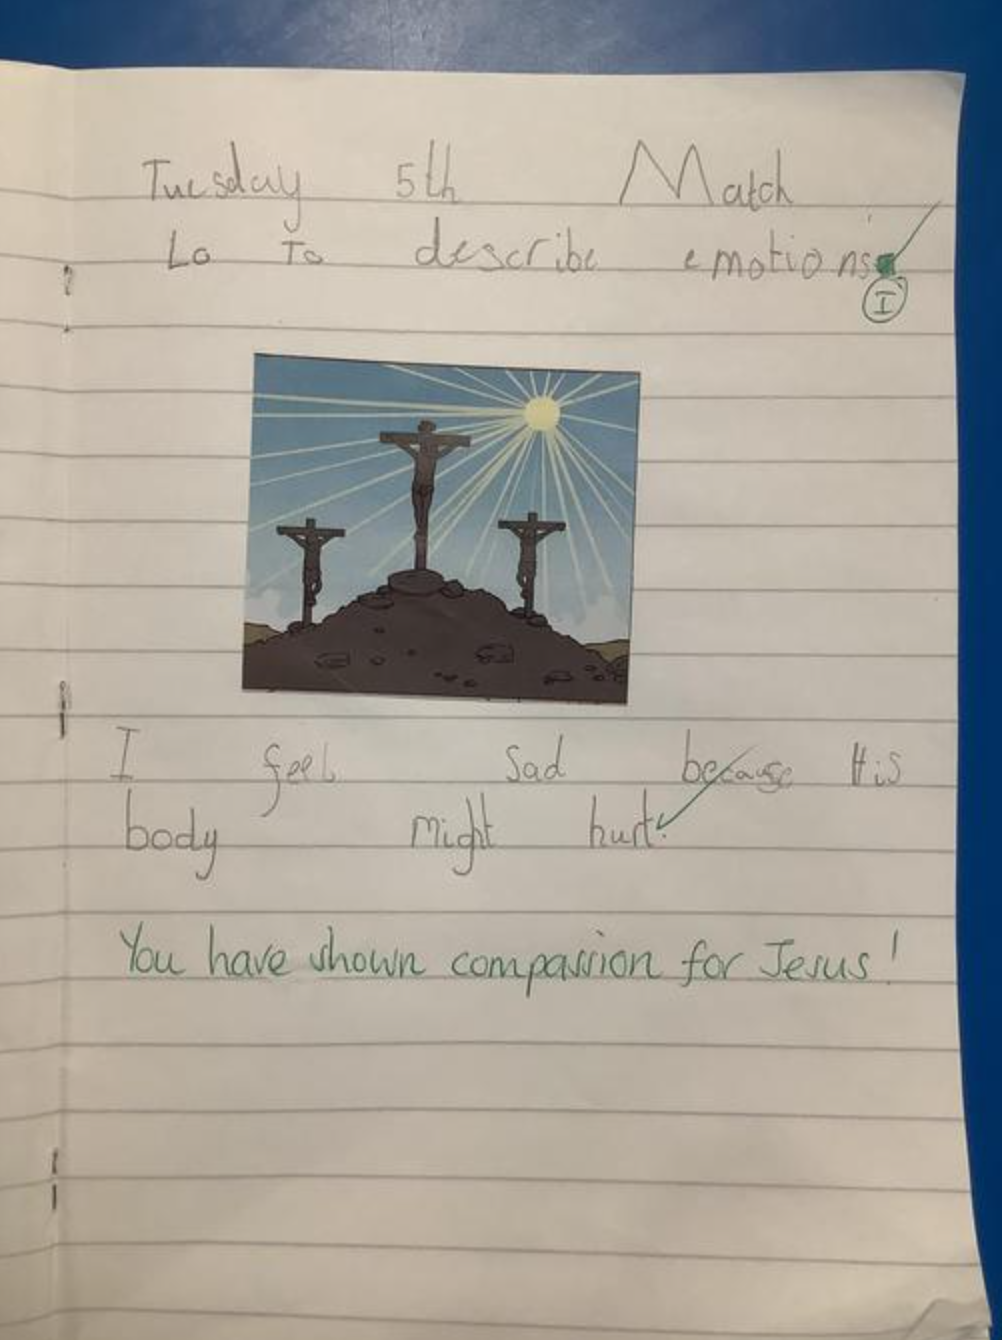 Tuesday 5th March
Lo To describe emotions
I
I feel sad because His
body might hurt.
You have shown compassion for Jesus!